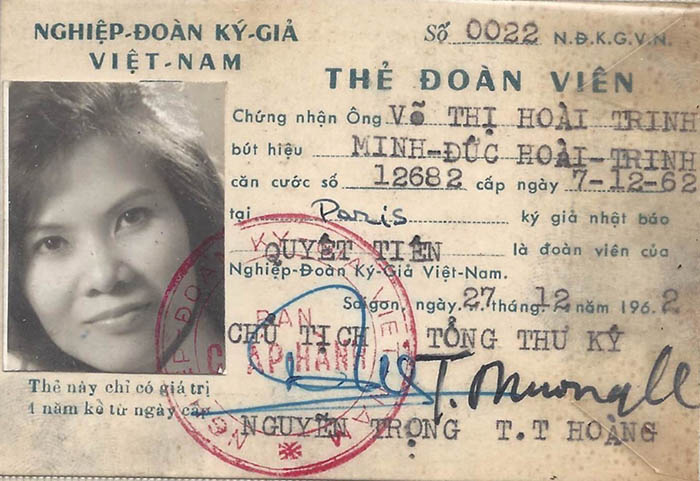 NGHIỆP-ĐOÀN KÝ-GIẢ
VIỆT-NAM
Số 0022 N.Đ.K.G.V.N.
THẺ ĐOÀN VIÊN
Chứng nhận Ông VÕ THỊ HOÀI TRINH
bút hiệu MINH-ĐỨC HOÀI-TRINH
căn cước số 12682 cấp ngày 7-12-62
tại Paris ký giả nhật báo
QUYẾT TIẾN là đoàn viên của
Nghiệp-Đoàn Ký-Giả Việt-Nam.
Saigon, ngày 27 tháng 12 năm 1962
CHỦ TỊCH TỔNG THƯ KÝ
NGHIỆP-ĐOÀN KÝ GIẢ VIỆT NAM
BAN
CHẤP HÀNH
Thẻ này chỉ có giá trị
1 năm kể từ ngày cấp
NGUYỄN TRỌNG T.T HOÀNG